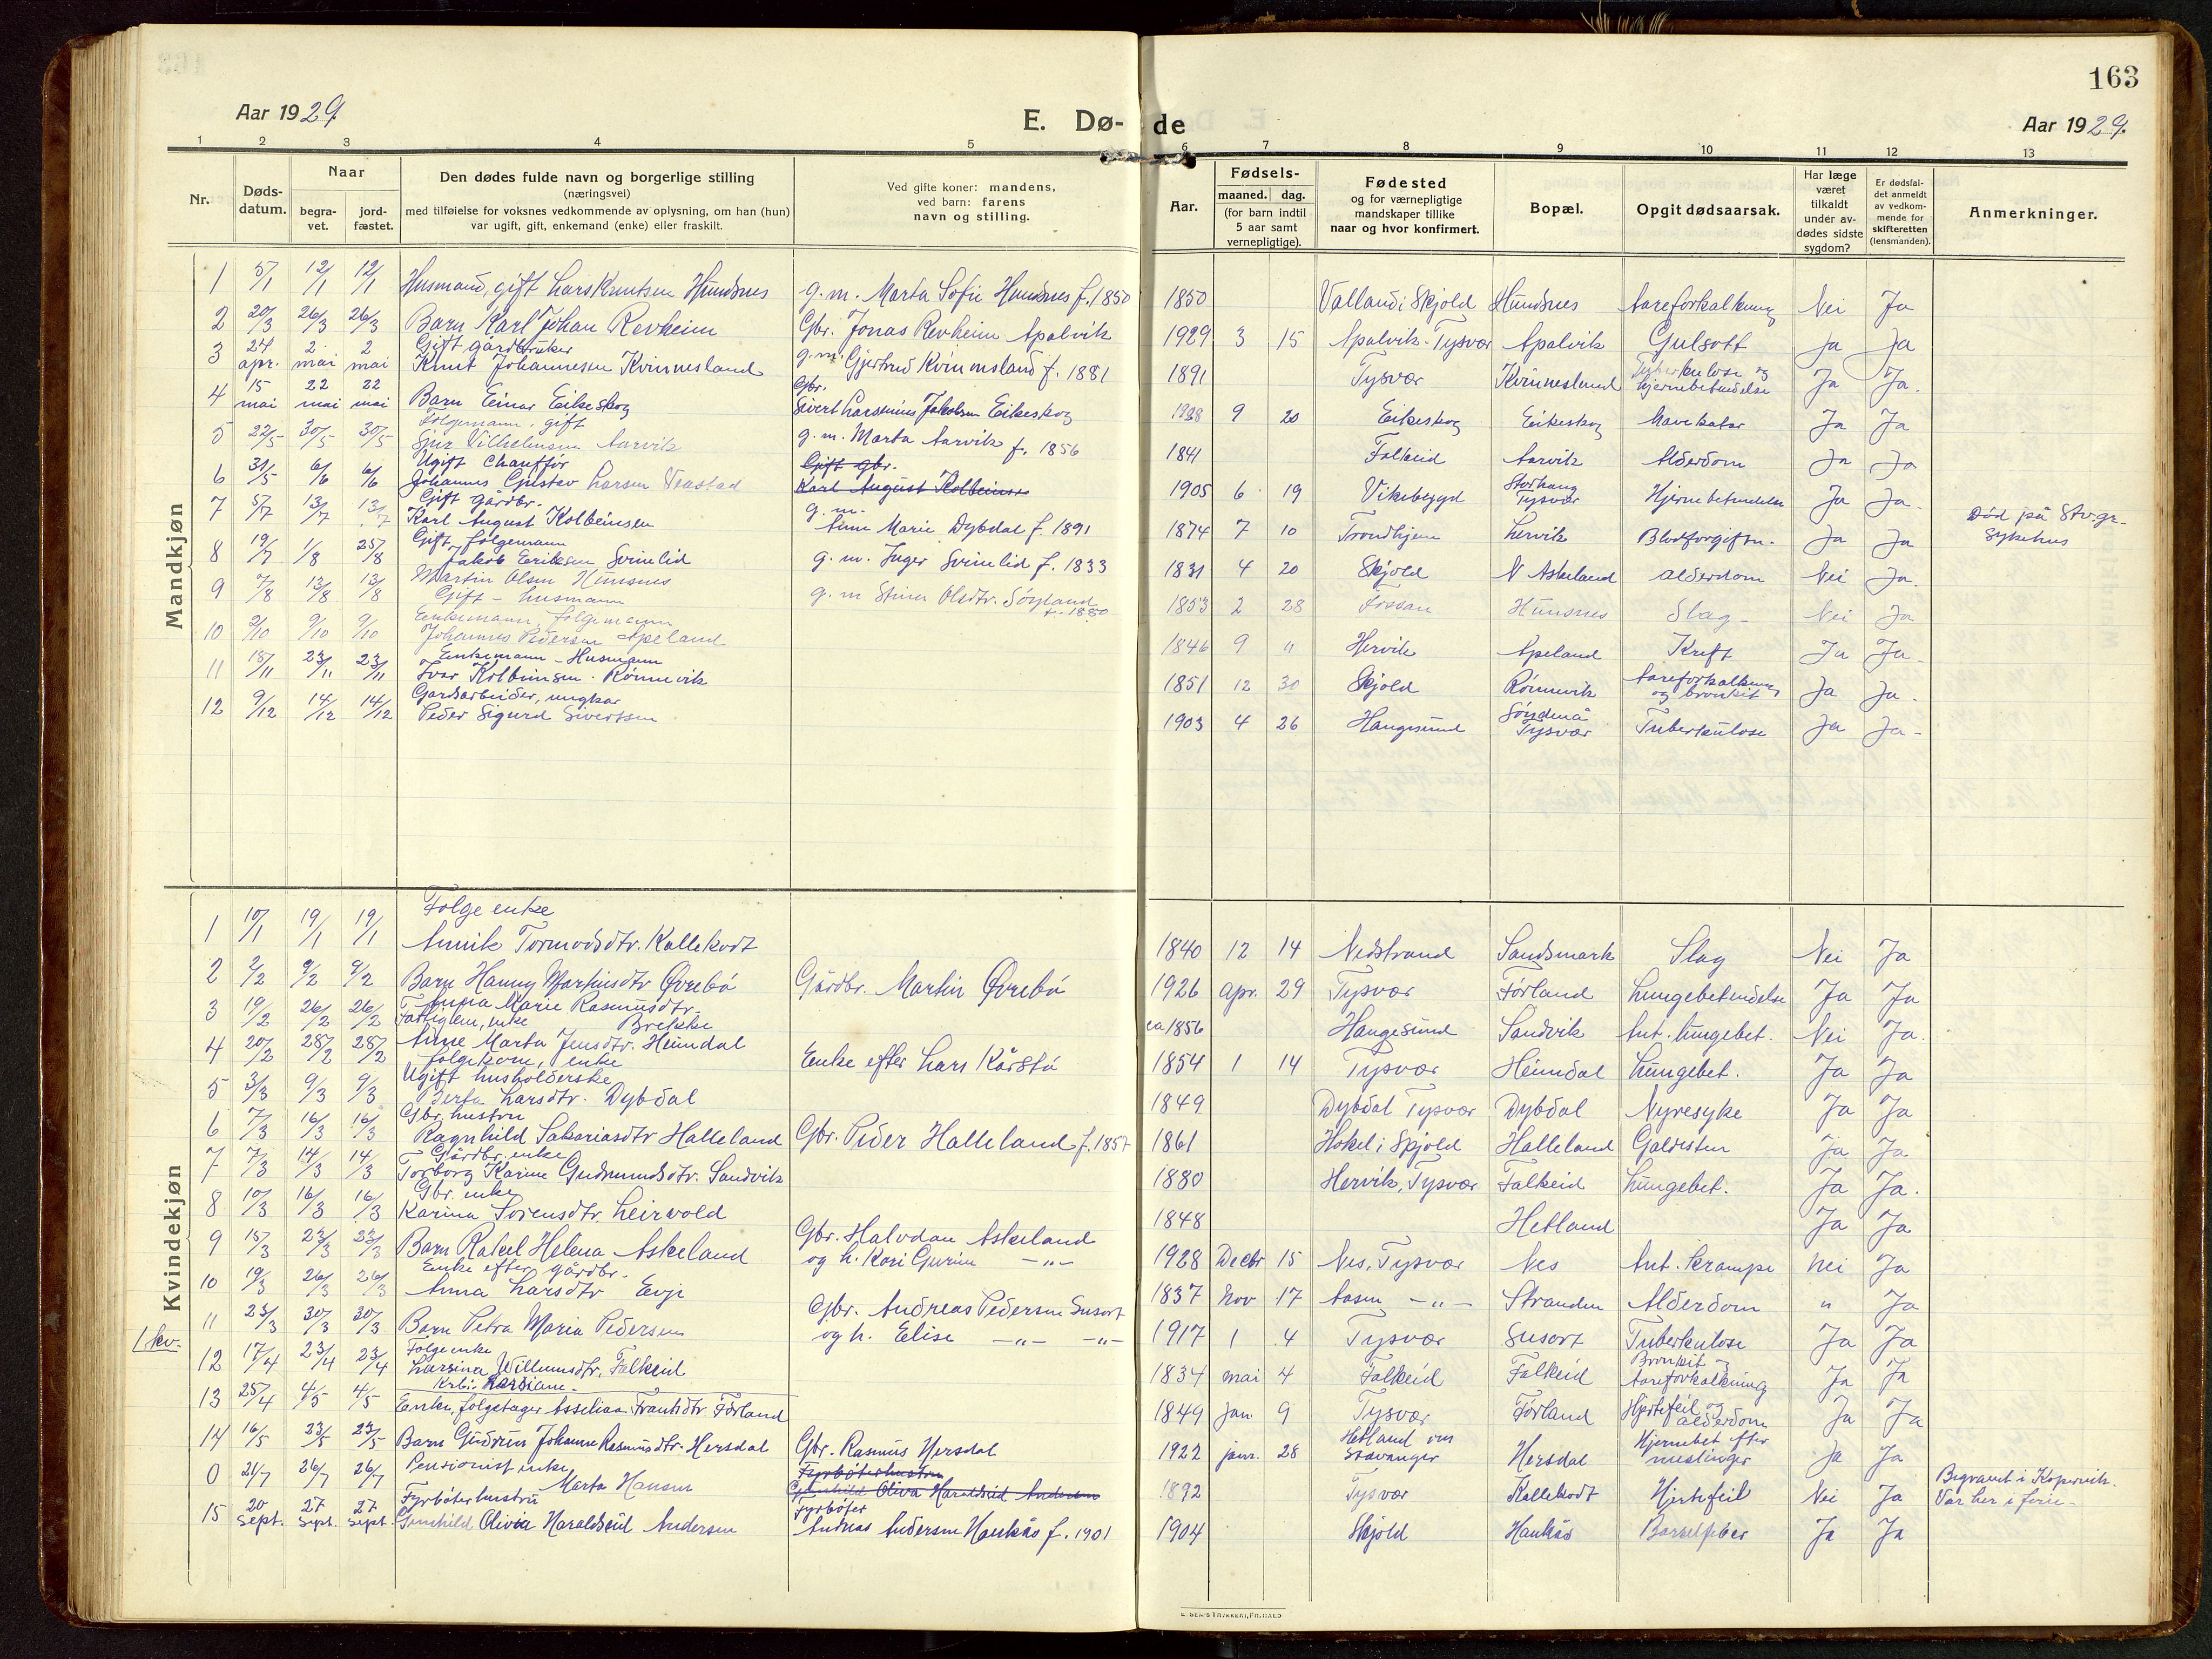 163
Aar 1929.
E. Dø-
de
Aar 1929.
1 2 3 4 5 6 7 8 9 10 11 12 13
Nr.
Døds-
datum.
Naar
begra-
vet.
jord-
fæstet.
Den dødes fulde navn og borgerlige stilling
(næringsvei)
med tilføielse for voksnes vedkommende av oplysning, om han (hun)
var ugift, gift, enkemand (enke) eller fraskilt.
Ved gifte koner: mandens,
ved barn: farens
navn og stilling.
Aar.
Fødsels-
maaned. dag.
(for barn indtil
5 aar samt
vernepligtige).
Fødested
og for værnepligtige
mandskaper tillike
naar og hvor konfirmert.
Bopæl.
Opgit dødsaarsak.
Har læge
været
tilkaldt
under av-
dødes sidste
sygdom?
Er dødsfal-
det anmeldt
av vedkom-
mende for
skifteretten
(lensmanden).
Anmerkninger.
Mandkjøn
1 5/1 12/1 12/1 Husmand, gift Lars Knutsen Hundsnes g. m. Marta Sofie Hundsnes f. 1850 1850 Valland i Skjold Hundsnes Aareforkalkning Nei Ja
2 20/3 26/3 26/3 Barn Karl Johan Revheim Gbr. Jonas Revheim Apalvik 1929 3 15 Apalvik - Tysvær Apalvik Gulsott Ja Ja
Gift gårdbruker
3 24 apr. 2 mai 2 mai Knut Johannesen Kvinnesland g. m. Gjertrud Kvinnesland f. 1881 1891 Tysvær Kvinnesland Tuberkulose og hjernebetendelse Ja Ja.
4 15 mai 22 mai 22 mai Barn Einar Eikeskog Gbr. Sivert Larsenius Jakobsen Eikeskog 1928 9 20 Eikeskog Eikeskog Mavekatar Ja Ja
Følgemann, gift
5 22/5 30/5 30/5 Sjur Vilhelmsen Aarvik g. m. Marta Aarvik f. 1856 1841 Falkeid Aarvik Alderdom Ja Ja
Ugift Chauffør Gift gbr.
6 31/5 6/6 6/6 Johannes Gustav Larsen Veastad Karl August Kolbeinsen 1905 6 19 Vikebygd Storhaug Tysvær Hjernebetendelse Ja Ja.
Gift gårdbr.
7 5/7 13/7 13/7 Karl August Kolbeinsen g. m. Anne Marie Dybdal f. 1891 1874 7 10 Trondhjem Hervik Blodforgiftn. Ja Ja Død på Stv.gr. Sykehus
Gift følgemann
8 19/7 1/8 25/8 Jakob Eriksen Svinelid g. m. Inger Svinelid f. 1833 1831 4 20 Skjold N Askeland Alderdom Nei Ja.
Martin Olsen Hunsnes
9 7/8 13/8 13/8 Gift - husmann g. m Stina Olsdtr. Søyland f. 1850 1853 2 28 Fossan Hunsnes Slag - Nei Ja
Enkemann, følgemann
10 2/10 9/10 9/10 Johannes Pedersen Apeland 1846 9 " Hervik Apeland Kreft Ja Ja.
Enkemann - Husmann
11 18/11 23/11 23/11 Ivar Kolbeinsen Rønnevik 1851 12 30 Skjold Rønnevik Aareforkalkning og bronkit Ja Ja.
Gardsarbeider, ungkar
12 9/12 14/12 14/12 Peder Sigurd Sivertsen 1903 4 26 Haugesund Tysvær Tuberkulose Ja Ja -
Kvindekjøn
Følgeenke
1 10/1 19/1 19/1 Annik Tormodsdtr. Kallekodt 1840 12 14 Nedstrand Sandsmark Slag Nei Ja
2 2/2 9/2 9/2 Barn Hanny Martinsdtr Øvrebø Gårdbr. Martin Øvrebø 1926 apr. 29 Tysvær Førland Lungebetendelse Ja Ja
Anna Marie Rasmusdtr.
3 19/2 26/2 26/2 Fattiglem, enke Brekke ca 1856 Haugesund Sandvik Ant. lungebet. Nei Ja.
4 20/2 28/2 28/2 Anne Marta Jensdtr. Heimdal følgekone, enke Enke efter Lars Kårstø 1854 1 14 Tysvær Heimdal Lungebet. Ja Ja
Ugift husholderske
5 3/3 9/3 9/3 Berta Larsdtr. Dybdal 1849 Dybdal Tysvær Dybdal Nyresyke Ja Ja
Gbr. hustru
6 7/3 16/3 16/3 Ragnhild Sakariasdtr Halleland Gbr. Peder Halleland f. 1857 1861 Hokel i Skjold Halleland Galdesten Ja Ja
Gårdbr. enke
7 7/3 14/3 14/3 Torborg Karine Gudmundsdtr. Sandvik 1880 Hervik, Tysvær Falkeid Lungebet. Ja Ja.
Gbr. enke
8 10/3 16/3 16/3 Karina Sørensdtr. Leirvold 1848 Hetland Ja Ja
9 18/3 23/3 23/3 Barn Rakel Helena Askeland Gbr. Halvdan Askeland og h. Kari Gurine - " - 1928 Decbr 15 Nes, Tysvær Nes Ant. krampe Nei Ja
Enke efter gårdbr.
10 19/3 26/3 26/3 Anna Larsdtr Evje 1837 Nov 17 Aasen - " - Stranden Alderdom " Ja
11 23/3 30/3 30/3 Barn Petra Maria Pedersen Gbr. Andreas Pedersen Susort og h. Elise - " - - " - 1917 1 4 Tysvær Susort Tuberkulose Ja Ja
1 kv.
Følgeenke
12 17/4 23/4 23/4 Larsina Willumsdtr. Falkeid 1834 mai 4 Falkeid Falkeid Bronkit og Aareforkalkning Ja Ja
13 25/4 4/5 4/5 Enke, følgetager Asseliaa Frantsdtr Førland 1849 jan. 9 Tysvær Førland Hjertefeil og alderdom Ja Ja
14 16/5 23/5 23/5 Barn Gudrun Johanne Rasmusdtr. Hersdal Gbr. Rasmus Hersdal 1922 janr. 28 Hetland Stavanger Hersdal Hjernebet efter meslinger Ja Ja
Pensionist enke Fyrbøterhustru
0 21/7 26/7 26/7 Marta Hansen Gunhild Oliva Haraldseid Andersen 1892 Tysvær Kallekodt Hjertefeil Nei Ja Begravet i Kopervik. Var her i ferie -
Fyrbøterhustru Fyrbøter
15 20 Sept. 27 Sept. 27 Sept. Gunhild Olivia Haraldseid Andersen Andreas Andersen Haukås f. 1901 1904 Skjold Haukås Barselfeber Ja Ja